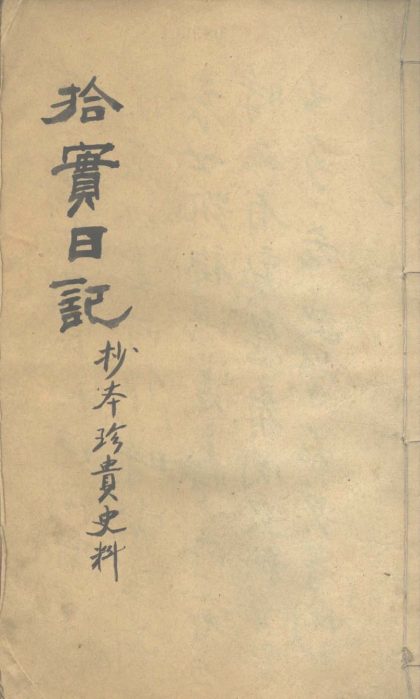 拾實日記
抄本珍貴史料